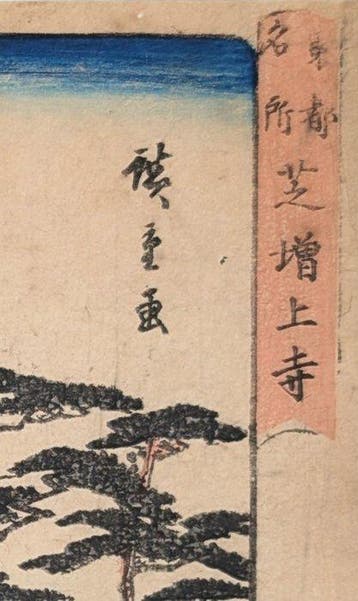 東都
名所
芝増上寺
廣重画